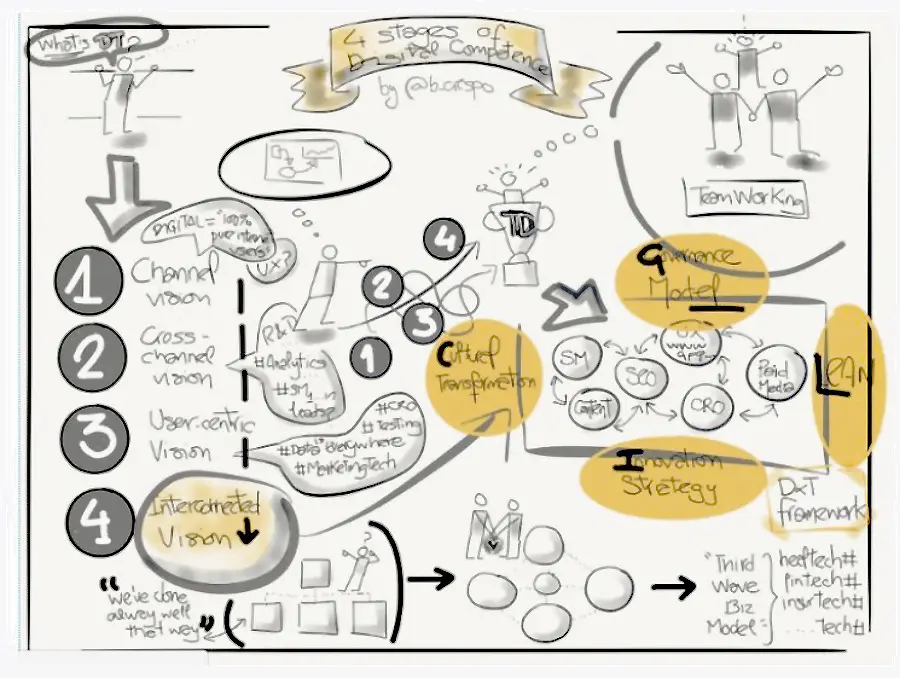 What is DT?
4 stages of
Digital Competence
by @b.crespo
TeamWorking
DIGITAL = "100%
pure internet
users"
UX?
1
Channel
vision
2
Cross-
channel
vision
3
User-centric
Vision
4
Interconnected
Vision
R&D
#Analytics
#SM
#CRO
#Testing
#Data Everywhere
#MarketingTech
1
2
3
4
TD
Governance
Model
Cultural
Transformation
LEAN
Innovation
Strategy
SM
SEO
UX
www
APP
Paid
Media
Content
CRO
DxT
framework
"we've done
always well
that way"
?
M
"Third
Wave
Biz
Model"
healtech#
fintech#
insurtech#
....tech#